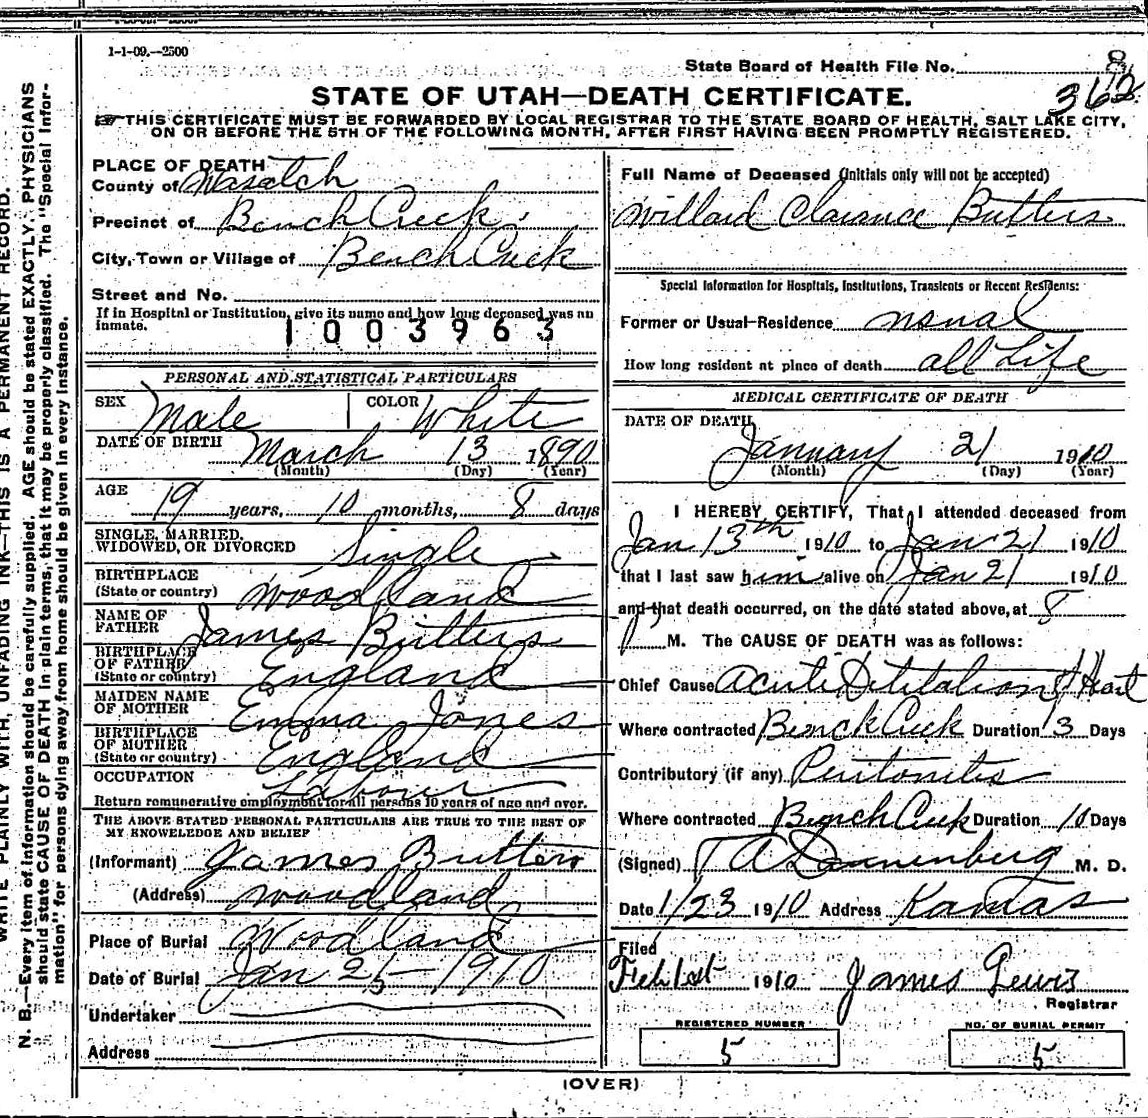 1-1-09.—2500
State Board of Health File No. 8
362
STATE OF UTAH—DEATH CERTIFICATE.
THIS CERTIFICATE MUST BE FORWARDED BY LOCAL REGISTRAR TO THE STATE BOARD OF HEALTH, SALT LAKE CITY,
ON OR BEFORE THE 5TH OF THE FOLLOWING MONTH, AFTER FIRST HAVING BEEN PROMPTLY REGISTERED.
WRITE PLAINLY WITH UNFADING INK—THIS IS A PERMANENT RECORD.
N. B.—Every item of information should be carefully supplied. AGE should be stated EXACTLY. PHYSICIANS
should state CAUSE OF DEATH in plain terms, that it may be properly classified. The "Special Infor-
mation" for persons dying away from home should be given in every instance.
PLACE OF DEATH
County of Wasatch
Precinct of Bench Creek
City, Town or Village of Bench Creek
Street and No.
If in Hospital or Institution, give its name and how long deceased was an
inmate.
1003963
PERSONAL AND STATISTICAL PARTICULARS
SEX Male COLOR White
DATE OF BIRTH
March 13 1890
(Month) (Day) (Year)
AGE
19 years, 10 months, 8 days
SINGLE, MARRIED,
WIDOWED, OR DIVORCED Single
BIRTHPLACE
(State or country) Woodland
NAME OF
FATHER James Butters
BIRTHPLACE
OF FATHER
(State or country) England
MAIDEN NAME
OF MOTHER Emma Jones
BIRTHPLACE
OF MOTHER
(State or country) England
OCCUPATION Labour
Return remunerative employment for all persons 10 years of age and over.
THE ABOVE STATED PERSONAL PARTICULARS ARE TRUE TO THE BEST OF
MY KNOWELEDGE AND BELIEF
(Informant) James Butters
(Address) Woodland
Place of Burial Woodland
Date of Burial Jan 25—1910
Undertaker
Address
Full Name of Deceased (Initials only will not be accepted)
Willard Clarance Butters
Special Information for Hospitals, Institutions, Transients or Recent Residents:
Former or Usual Residence usual
How long resident at place of death all Life
MEDICAL CERTIFICATE OF DEATH
DATE OF DEATH
January 21 1910
(Month) (Day) (Year)
I HEREBY CERTIFY, That I attended deceased from
Jan 13th 1910 to Jan 21 1910
that I last saw him alive on Jan 21 1910
and that death occurred, on the date stated above, at 8
P M. The CAUSE OF DEATH was as follows:
Chief Cause Acute Dilitation of Heart
Where contracted Bench Creek Duration 3 Days
Contributory (if any) Peritonites
Where contracted Bench Creek Duration 10 Days
(Signed) A Dannenberg M. D.
Date 1/23 1910 Address Kamas
Filed
Feb 1st 1910 James Lewis
Registrar
REGISTERED NUMBER
5
NO. OF BURIAL PERMIT
5
(OVER)